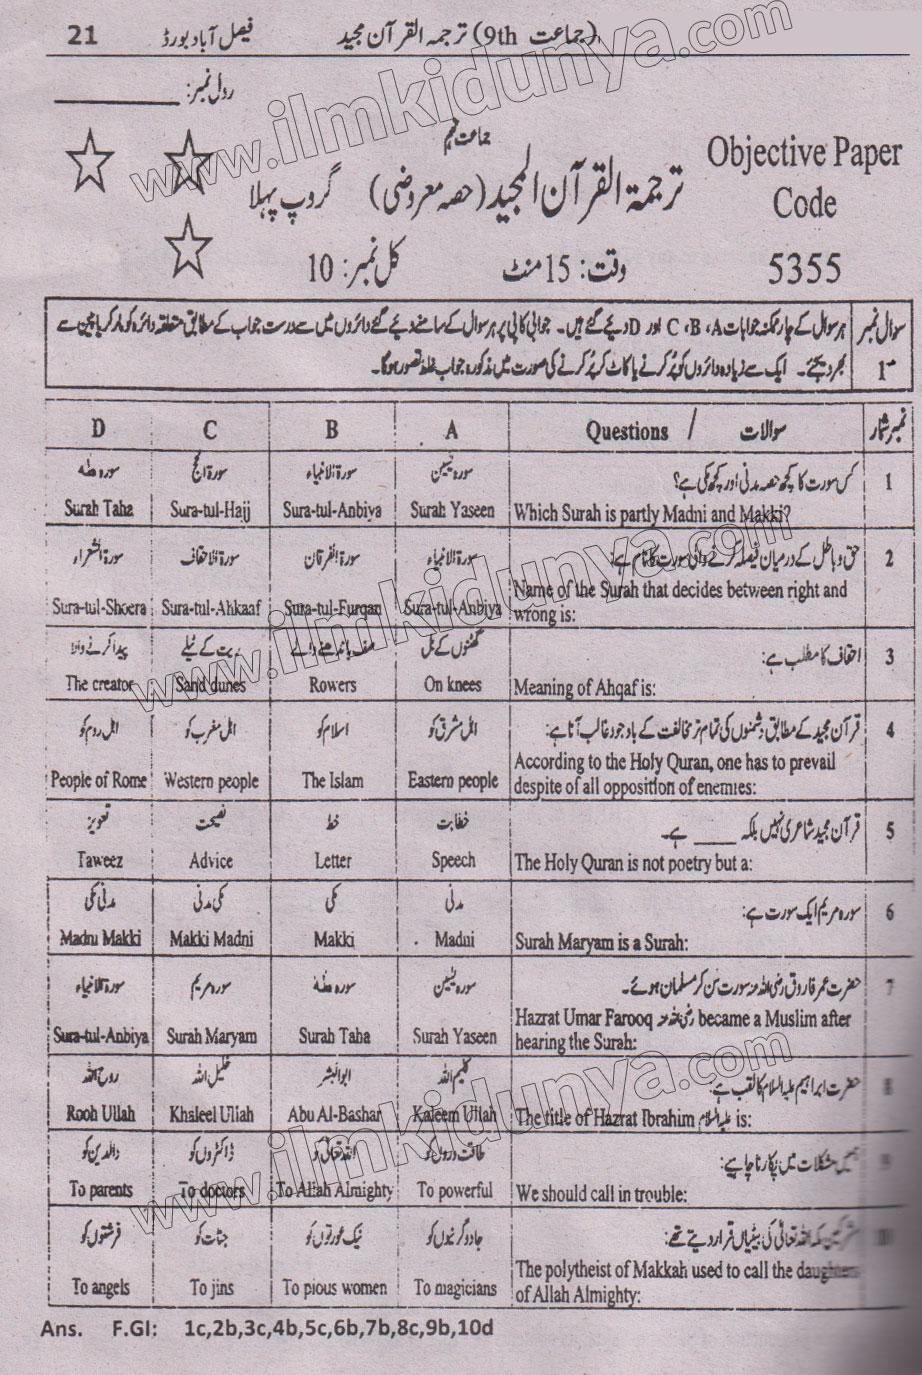 21 فیصل آباد بورڈ (جماعت 9th) ترجمہ القرآن مجید
رول نمبر: ____________
جماعت نہم
ترجمۃ القرآن المجید (حصہ معروضی) گروپ پہلا
Objective Paper
Code
5355
وقت: 15 منٹ
کل نمبر: 10
سوال نمبر 1 ۔ ہر سوال کے چار ممکنہ جوابات A، B، C اور D دیئے گئے ہیں۔ جوابی کاپی پر ہر سوال کے سامنے دیئے گئے دائروں میں سے درست جواب کے مطابق متعلقہ دائرہ کو مارکر یا پین سے
بھر دیجئے۔ ایک سے زیادہ دائروں کو پُر کرنے یا کاٹ کر پُر کرنے کی صورت میں مذکورہ جواب غلط تصور ہوگا۔
نمبر شمار سوالات / Questions A B C D
1 کس سورت کا کچھ حصہ مدنی اور کچھ مکی ہے؟
Which Surah is partly Madni and Makki?
سورہ یٰسین سورۃ الانبیاء سورۃ الحج سورہ طٰہٰ
Surah Yaseen Sura-tul-Anbiya Sura-tul-Hajj Surah Taha
2 حق و باطل کے درمیان فیصلہ کرنے والی سورت کا نام ہے:
Name of the Surah that decides between right and
wrong is:
سورۃ الانبیاء سورۃ الفرقان سورۃ الاحقاف سورۃ الشعراء
Sura-tul-Anbiya Sura-tul-Furqan Sura-tul-Ahkaaf Sura-tul-Shoera
3 احقاف کا مطلب ہے:
Meaning of Ahqaf is:
گھٹنوں کے بل صف باندھنے والے ریت کے ٹیلے پیدا کرنے والا
On knees Rowers Sand dunes The creator
4 قرآن مجید کے مطابق دشمنوں کی تمام تر مخالفت کے باوجود غالب آنا ہے:
According to the Holy Quran, one has to prevail
despite of all opposition of enemies:
اہل مشرق کو اسلام کو اہل مغرب کو اہل روم کو
Eastern people The Islam Western people People of Rome
5 قرآن مجید شاعری نہیں بلکہ ____ ہے۔
The Holy Quran is not poetry but a:
خطابت خط نصیحت تعویز
Speech Letter Advice Taweez
6 سورہ مریم ایک سورت ہے:
Surah Maryam is a Surah:
مدنی مکی مکی مدنی مدنی مکی
Madni Makki Makki Madni Madnu Makki
7 حضرت عمر فاروق رضی اللہ عنہ سورت سن کر مسلمان ہوئے۔
Hazrat Umar Farooq رضی اللہ عنہ became a Muslim after
hearing the Surah:
سورہ یٰسین سورہ طٰہٰ سورہ مریم سورۃ الانبیاء
Surah Yaseen Surah Taha Surah Maryam Sura-tul-Anbiya
8 حضرت ابراہیم علیہ السلام کا لقب ہے:
The title of Hazrat Ibrahim علیہ السلام is:
کلیم اللہ ابو البشر خلیل اللہ روح اللہ
Kaleem Ullah Abu Al-Bashar Khaleel Ullah Rooh Ullah
9 ہمیں مشکلات میں پکارنا چاہیے:
We should call in trouble:
طاقت وروں کو اللہ تعالیٰ کو ڈاکٹروں کو والدین کو
To powerful To Allah Almighty To doctors To parents
10 مشرکین مکہ اللہ تعالیٰ کی بیٹیاں قرار دیتے تھے:
The polytheist of Makkah used to call the daughters
of Allah Almighty:
جادوگرنیوں کو نیک عورتوں کو جنات کو فرشتوں کو
To magicians To pious women To jins To angels
Ans. F.GI: 1c,2b,3c,4b,5c,6b,7b,8c,9b,10d
www.ilmkidunya.com
www.ilmkidunya.com
www.ilmkidunya.com